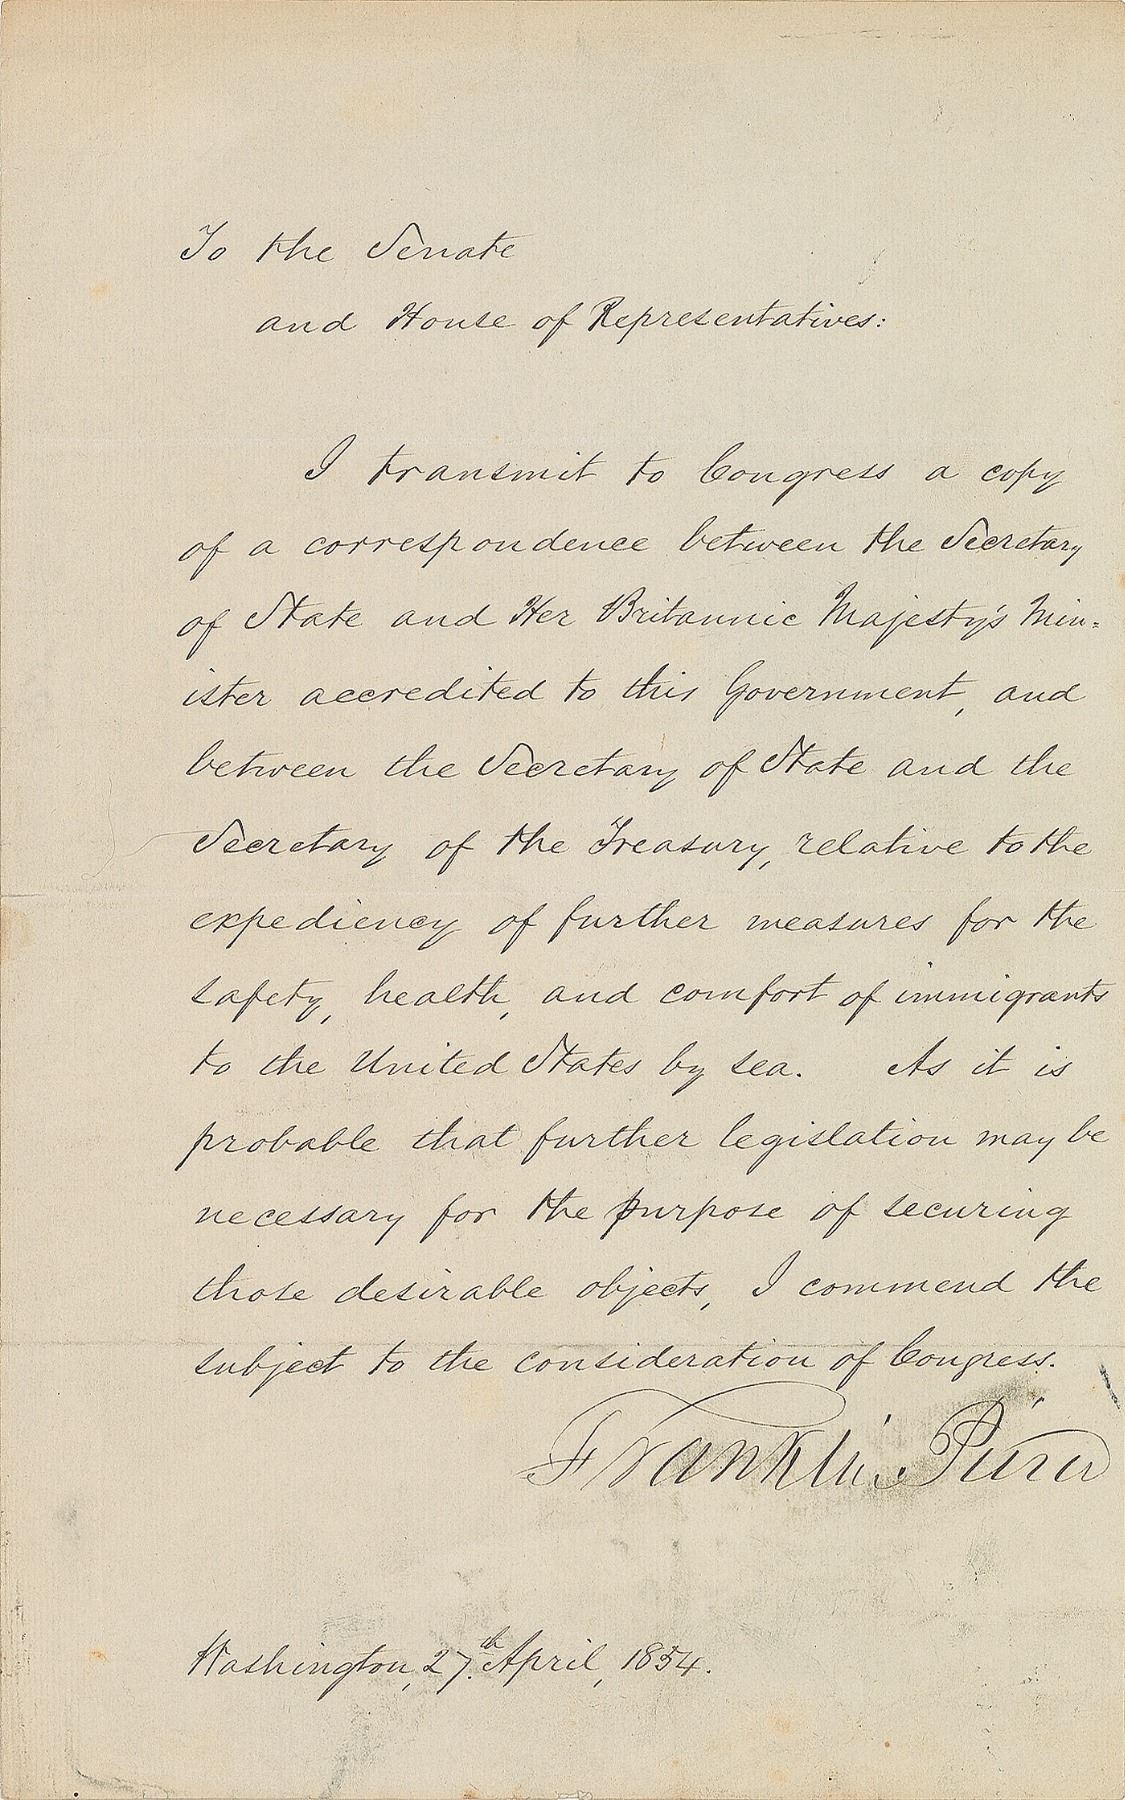 To the Senate
and House of Representatives:
I transmit to Congress a copy
of a correspondence between the Secretary
of State and Her Britannic Majesty's Min=
ister accredited to this Government, and
between the Secretary of State and the
Secretary of the Treasury, relative to the
expediency of further measures for the
safety, health, and comfort of immigrants
to the United States by sea. As it is
probable that further legislation may be
necessary for the purpose of securing
those desirable objects, I commend the
subject to the consideration of Congress.
Franklin Pierce
Washington, 27th April, 1854.